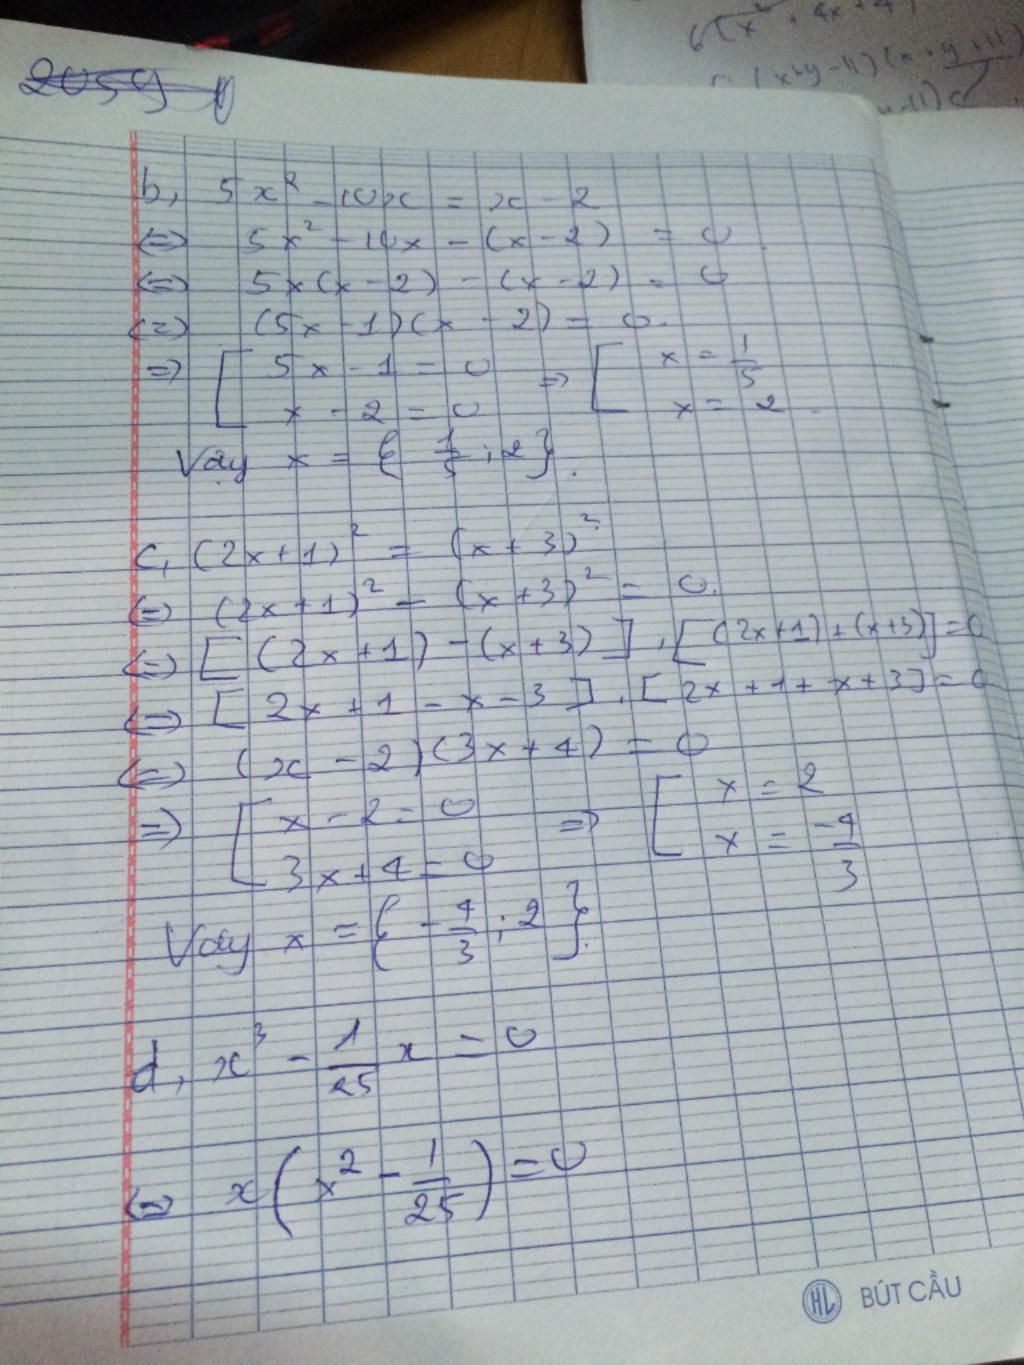 2059
6(x² + 4x + 4)
(x+y-11)(x+y+11)
b, 5x² - 10x = x - 2
<=> 5x² - 10x - (x - 2) = 0
<=> 5x(x - 2) - (x - 2) = 0
<=> (5x - 1)(x - 2) = 0.
=> [ 5x - 1 = 0 => [ x = 1/5
x - 2 = 0 x = 2
Vậy x = { 1/5 ; 2 }.
c, (2x+1)² = (x+3)²
<=> (2x+1)² - (x+3)² = 0.
<=> [ (2x+1) - (x+3) ] . [ (2x+1) + (x+3) ] = 0
<=> [ 2x + 1 - x - 3 ] . [ 2x + 1 + x + 3 ] = 0
<=> (x - 2)(3x + 4) = 0
=> [ x - 2 = 0 => [ x = 2
3x + 4 = 0 x = -4/3
Vậy x = { -4/3 ; 2 }.
d, x³ - 1/25 x = 0
<=> x ( x² - 1/25 ) = 0
HL BÚT CẦU